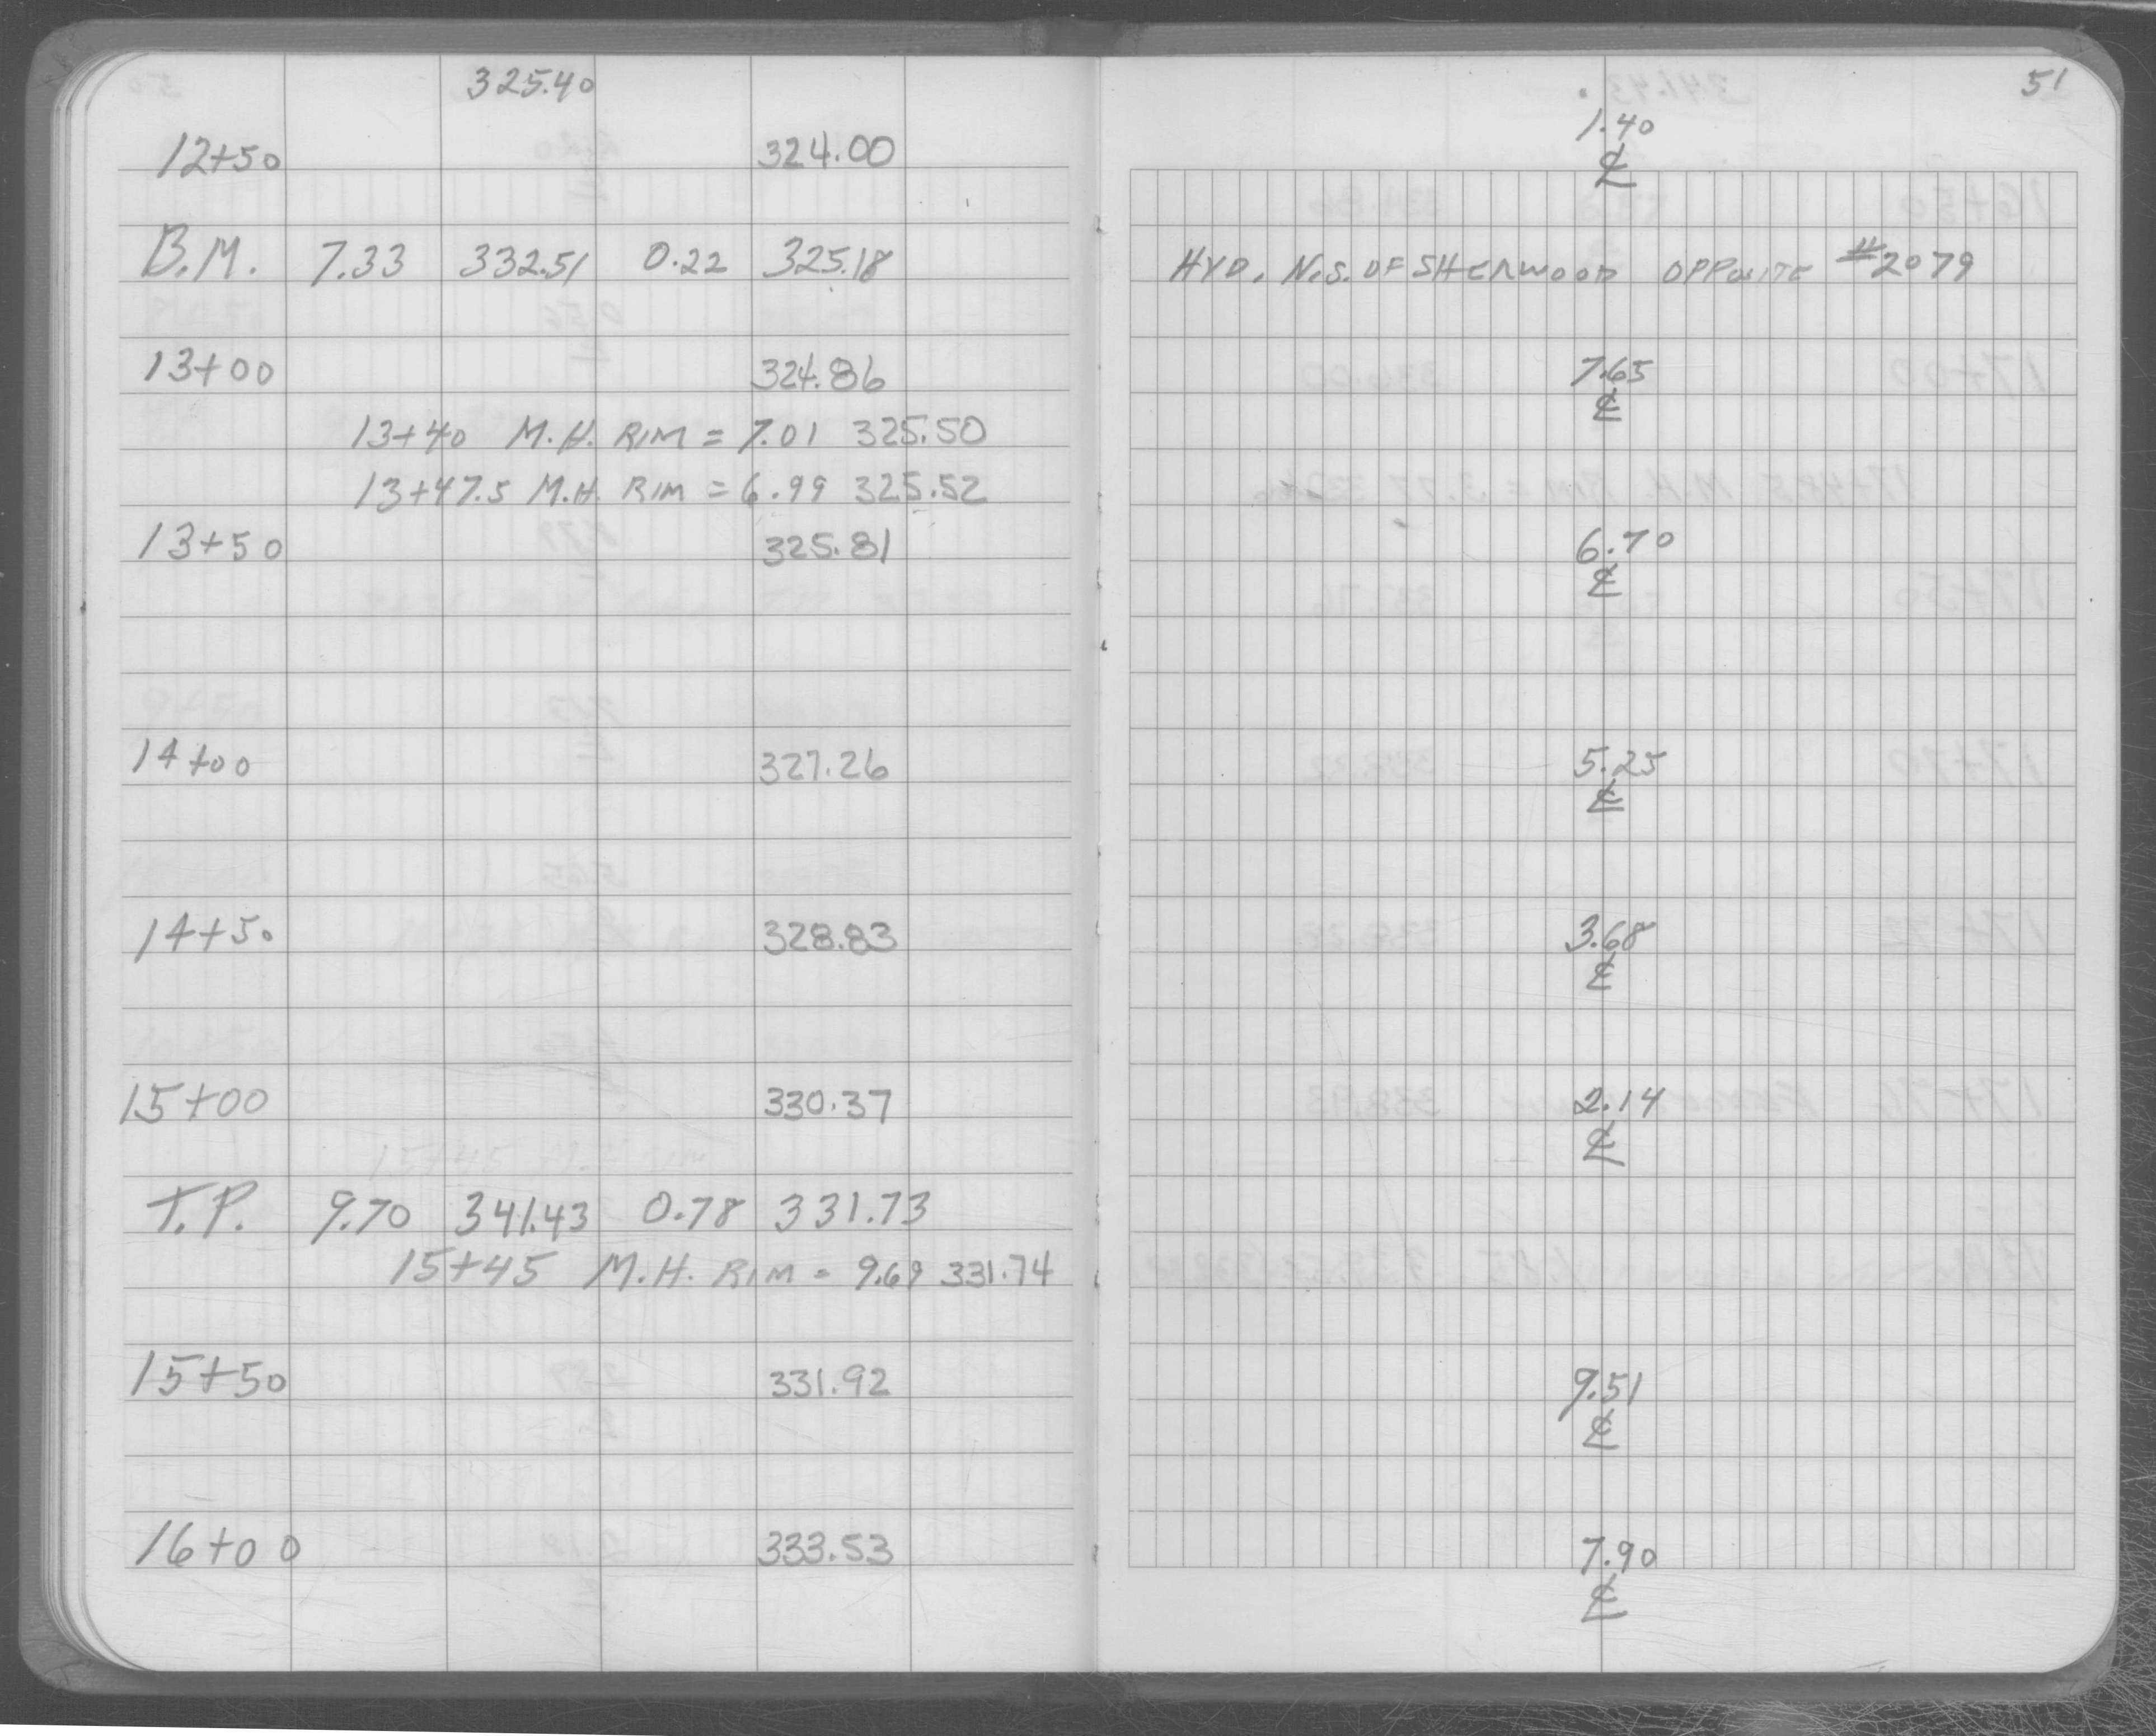 325.40 51
1.40
12+50 324.00 ℄
B.M. 7.33 332.51 0.22 325.18 HYD. N.S. OF SHERWOOD OPPOSITE #2079
13+00 324.86 7.65
℄
13+40 M.H. RIM = 7.01 325.50
13+47.5 M.H. RIM = 6.99 325.52
13+50 325.81 6.70
℄
14+00 327.26 5.25
℄
14+50 328.83 3.68
℄
15+00 330.37 2.14
℄
T.P. 9.70 341.43 0.78 331.73
15+45 M.H. RIM = 9.69 331.74
15+50 331.92 9.51
℄
16+00 333.53 7.90
℄